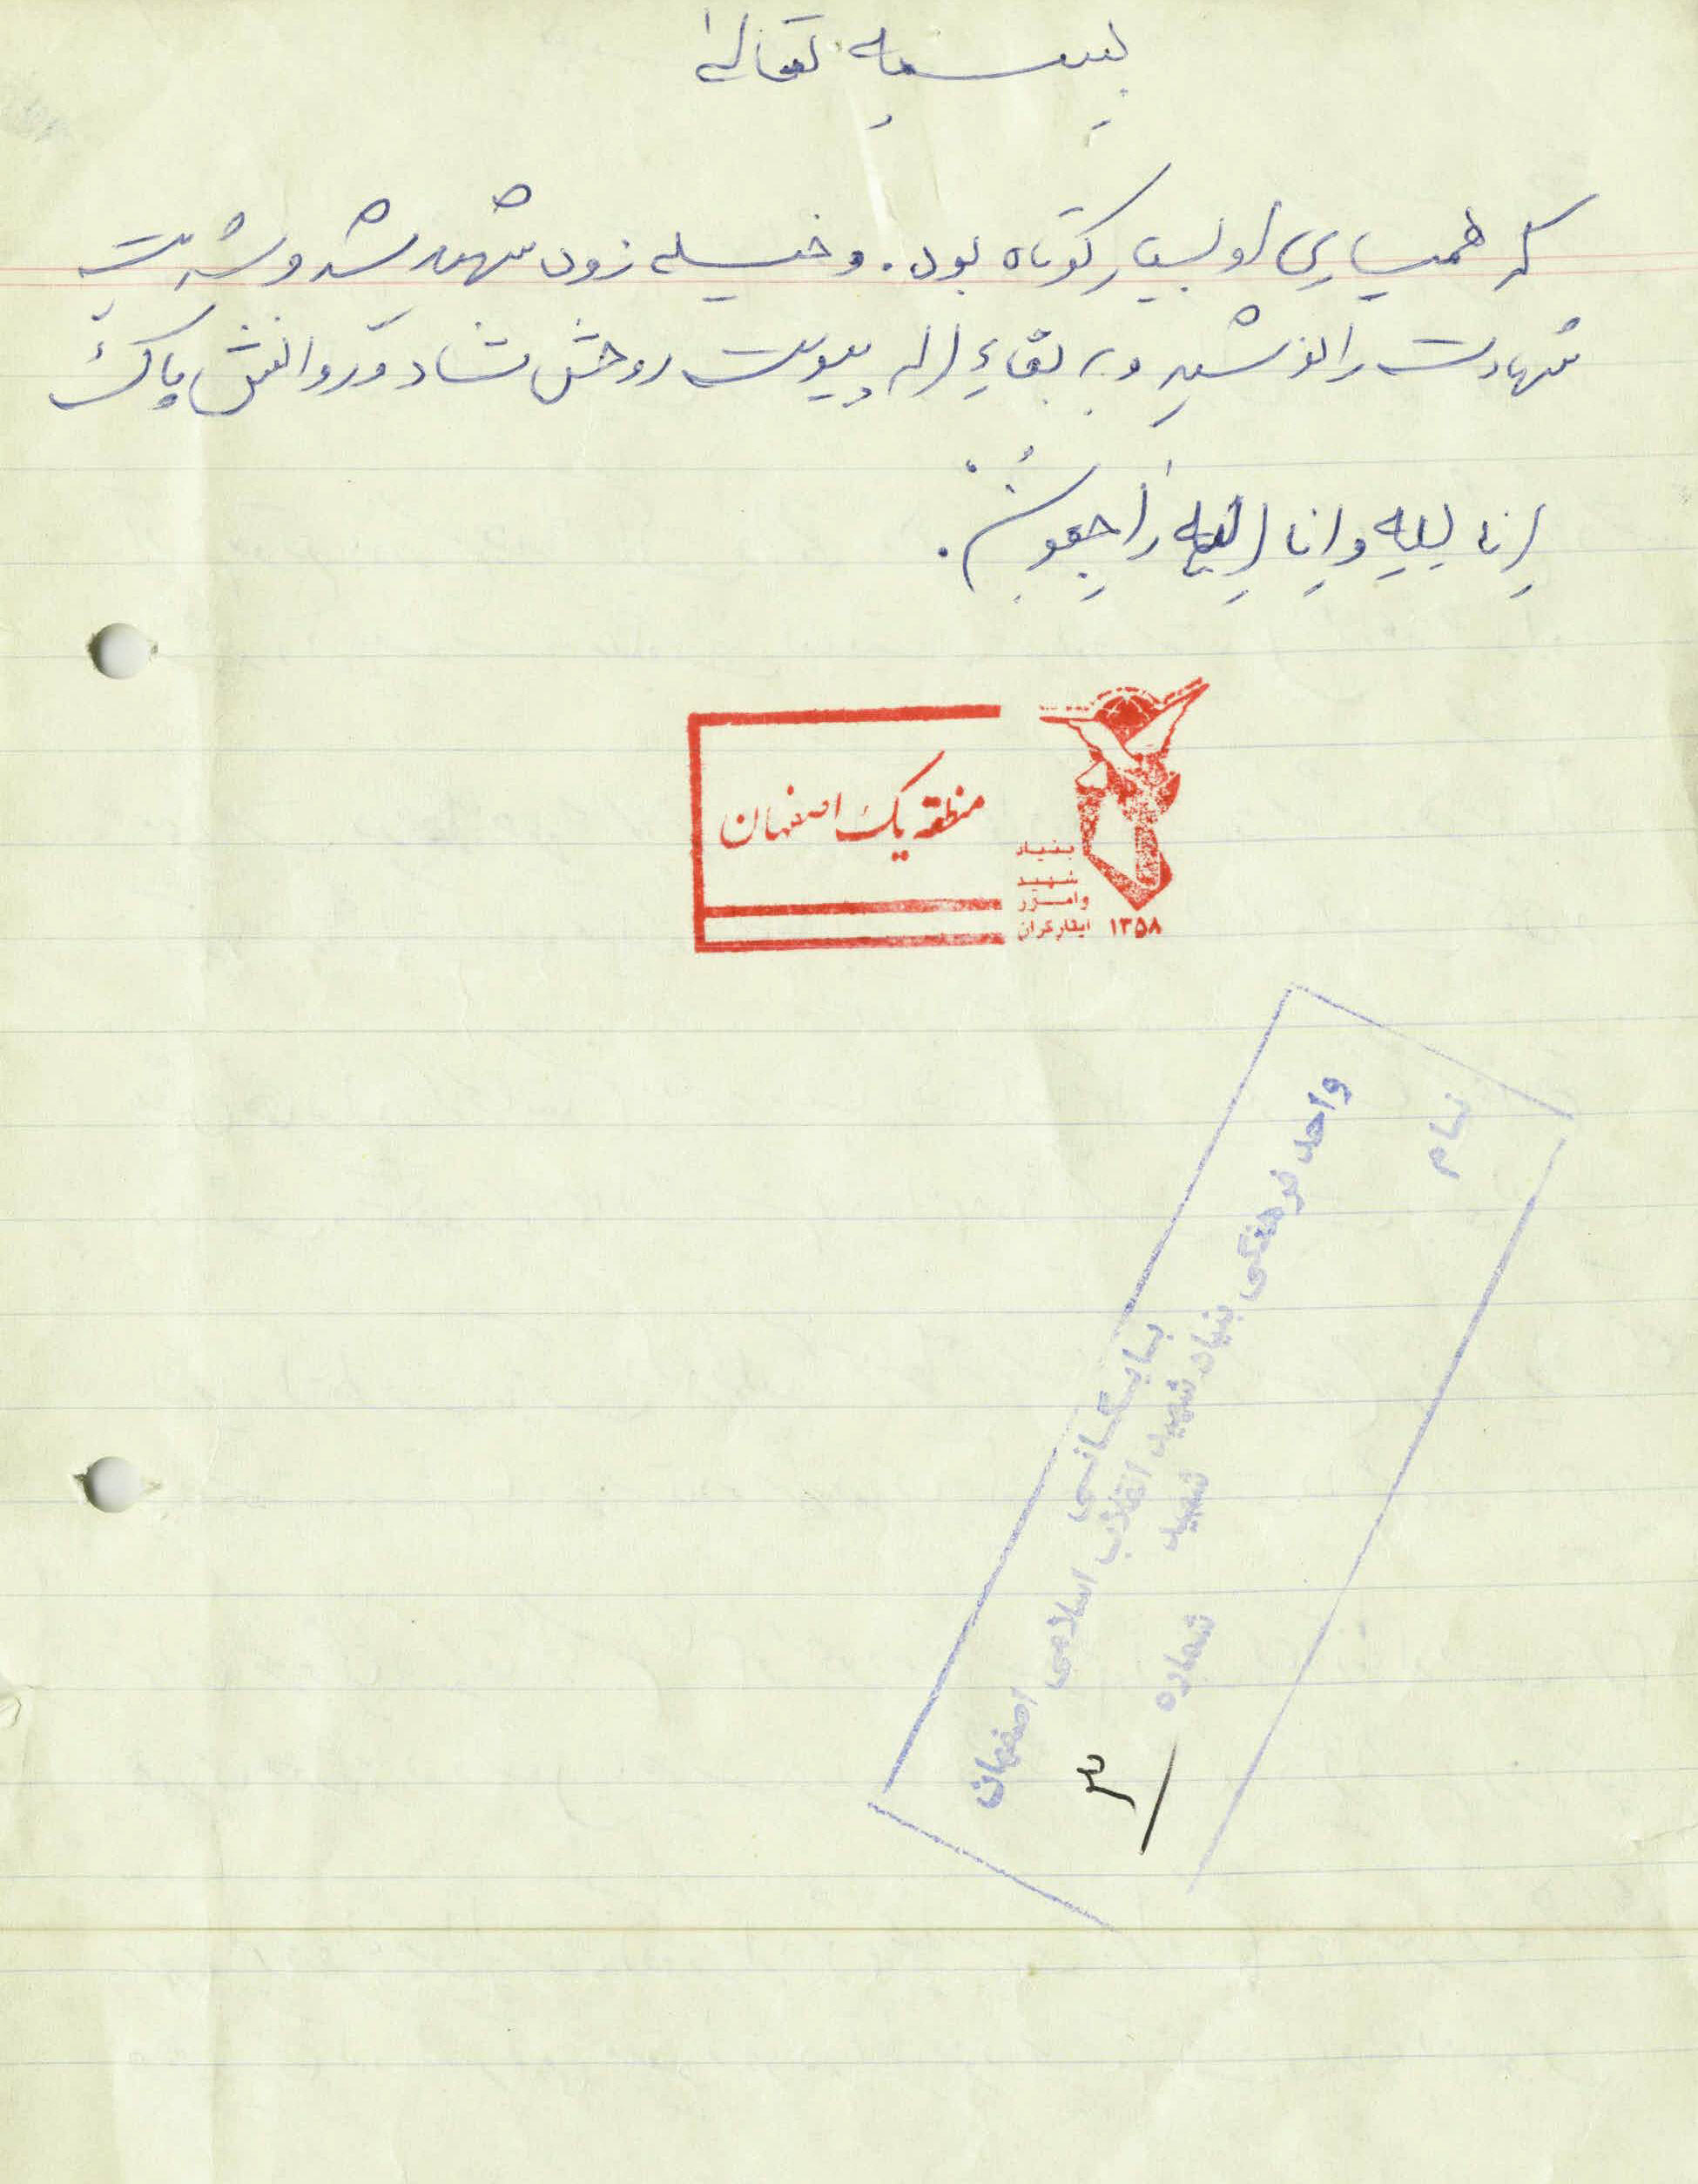 بسمه تعالی
که همسایری او بسیار کوتاه بود. و خیلی زود شهید شد و شربت
شهادت را نوشید و به لقاءِ الله پیوست روحش شاد و روانش پاک
إِنا لِلهِ و إِنا إِلیهِ راجِعونَ.
منطقه یک اصفهان
بنیاد
شهید
وامور
ایثارگران ۱۳۵۸
بایگانی
واحد فرهنگی بنیاد شهید انقلاب اسلامی اصفهان
نام
شهید
شماره
۳/